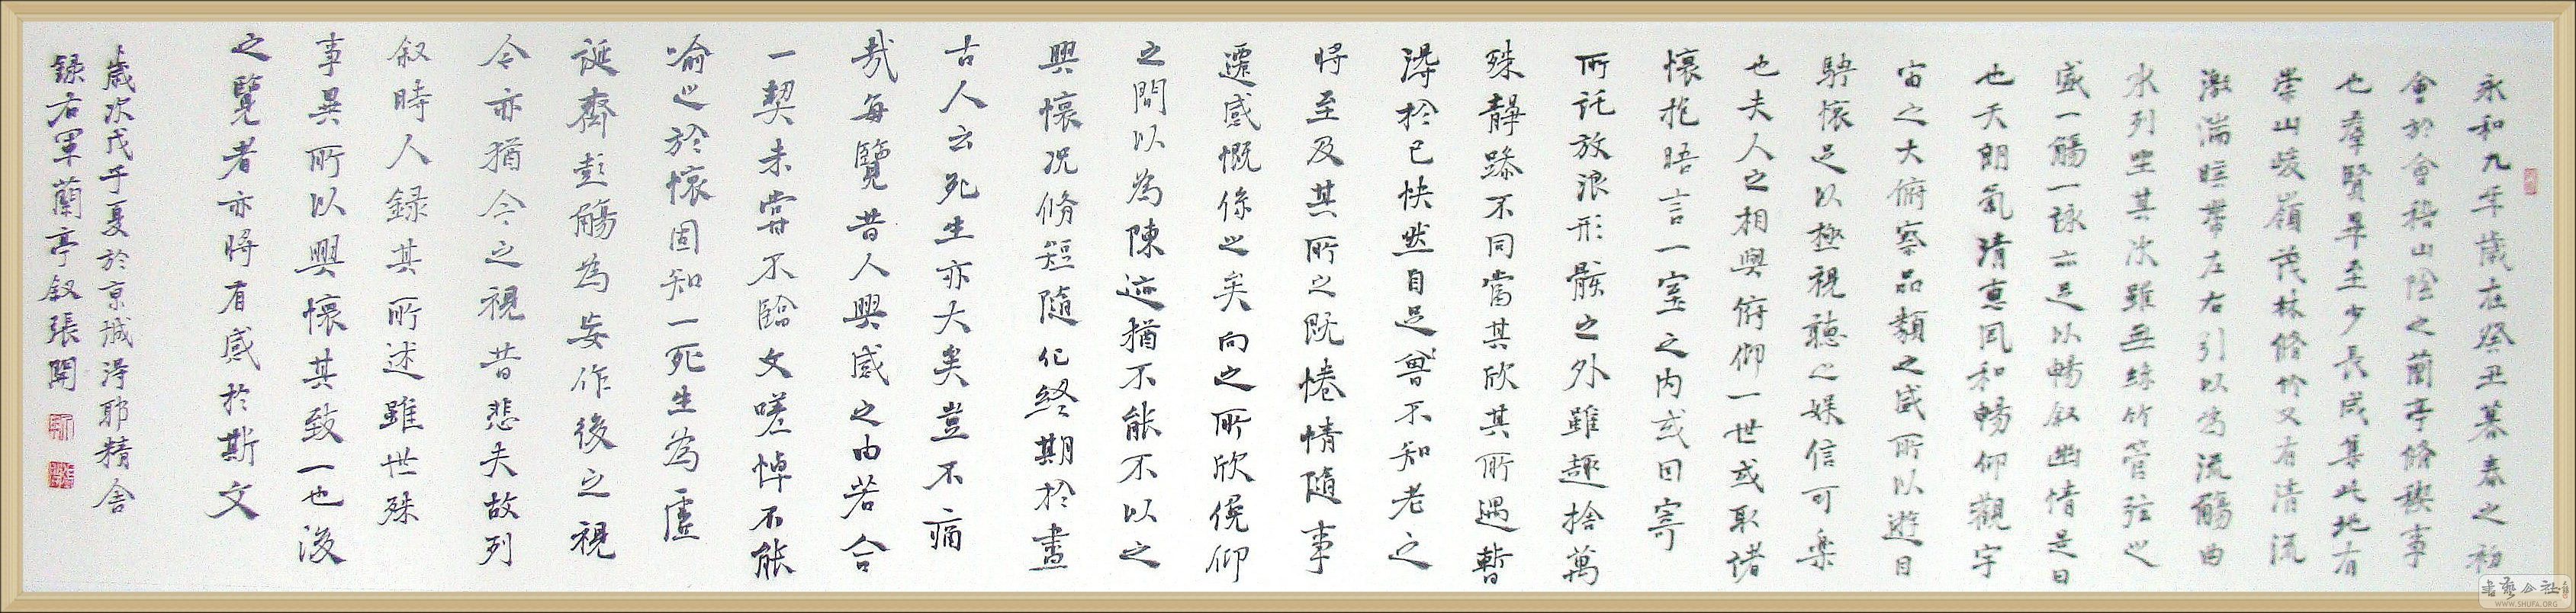 永和九年歲在癸丑暮春之初
會於會稽山陰之蘭亭脩稧事
也羣賢畢至少長咸集此地有
崇山峻嶺茂林脩竹又有清流
激湍暎帶左右引以為流觴曲
水列坐其次雖無絲竹管弦之
盛一觴一詠亦足以暢叙幽情是日
也天朗氣清惠風和暢仰觀宇
宙之大俯察品類之盛所以遊目
騁懷足以極視聽之娛信可樂
也夫人之相與俯仰一世或取諸
懷抱晤言一室之內或因寄
所託放浪形骸之外雖趣捨萬
殊靜躁不同當其欣其所遇暫
得於己怏然自足曾不知老之
將至及其所之既惓情隨事
遷感慨係之矣向之所欣俛仰
之間以為陳迹猶不能不以之
興懷況脩短隨化終期於盡
古人云死生亦大矣豈不痛
哉每覽昔人興感之由若合
一契未嘗不臨文嗟悼不能
喻之於懷固知一死生為虛
誕齊彭觴為妄作後之視
今亦猶今之視昔悲夫故列
叙時人錄其所述雖世殊
事異所以興懷其致一也後
之覽者亦將有感於斯文
歲次戊子夏於京城淂耶精舍
錄右軍蘭亭叙張開
WWW.SHUFA.ORG